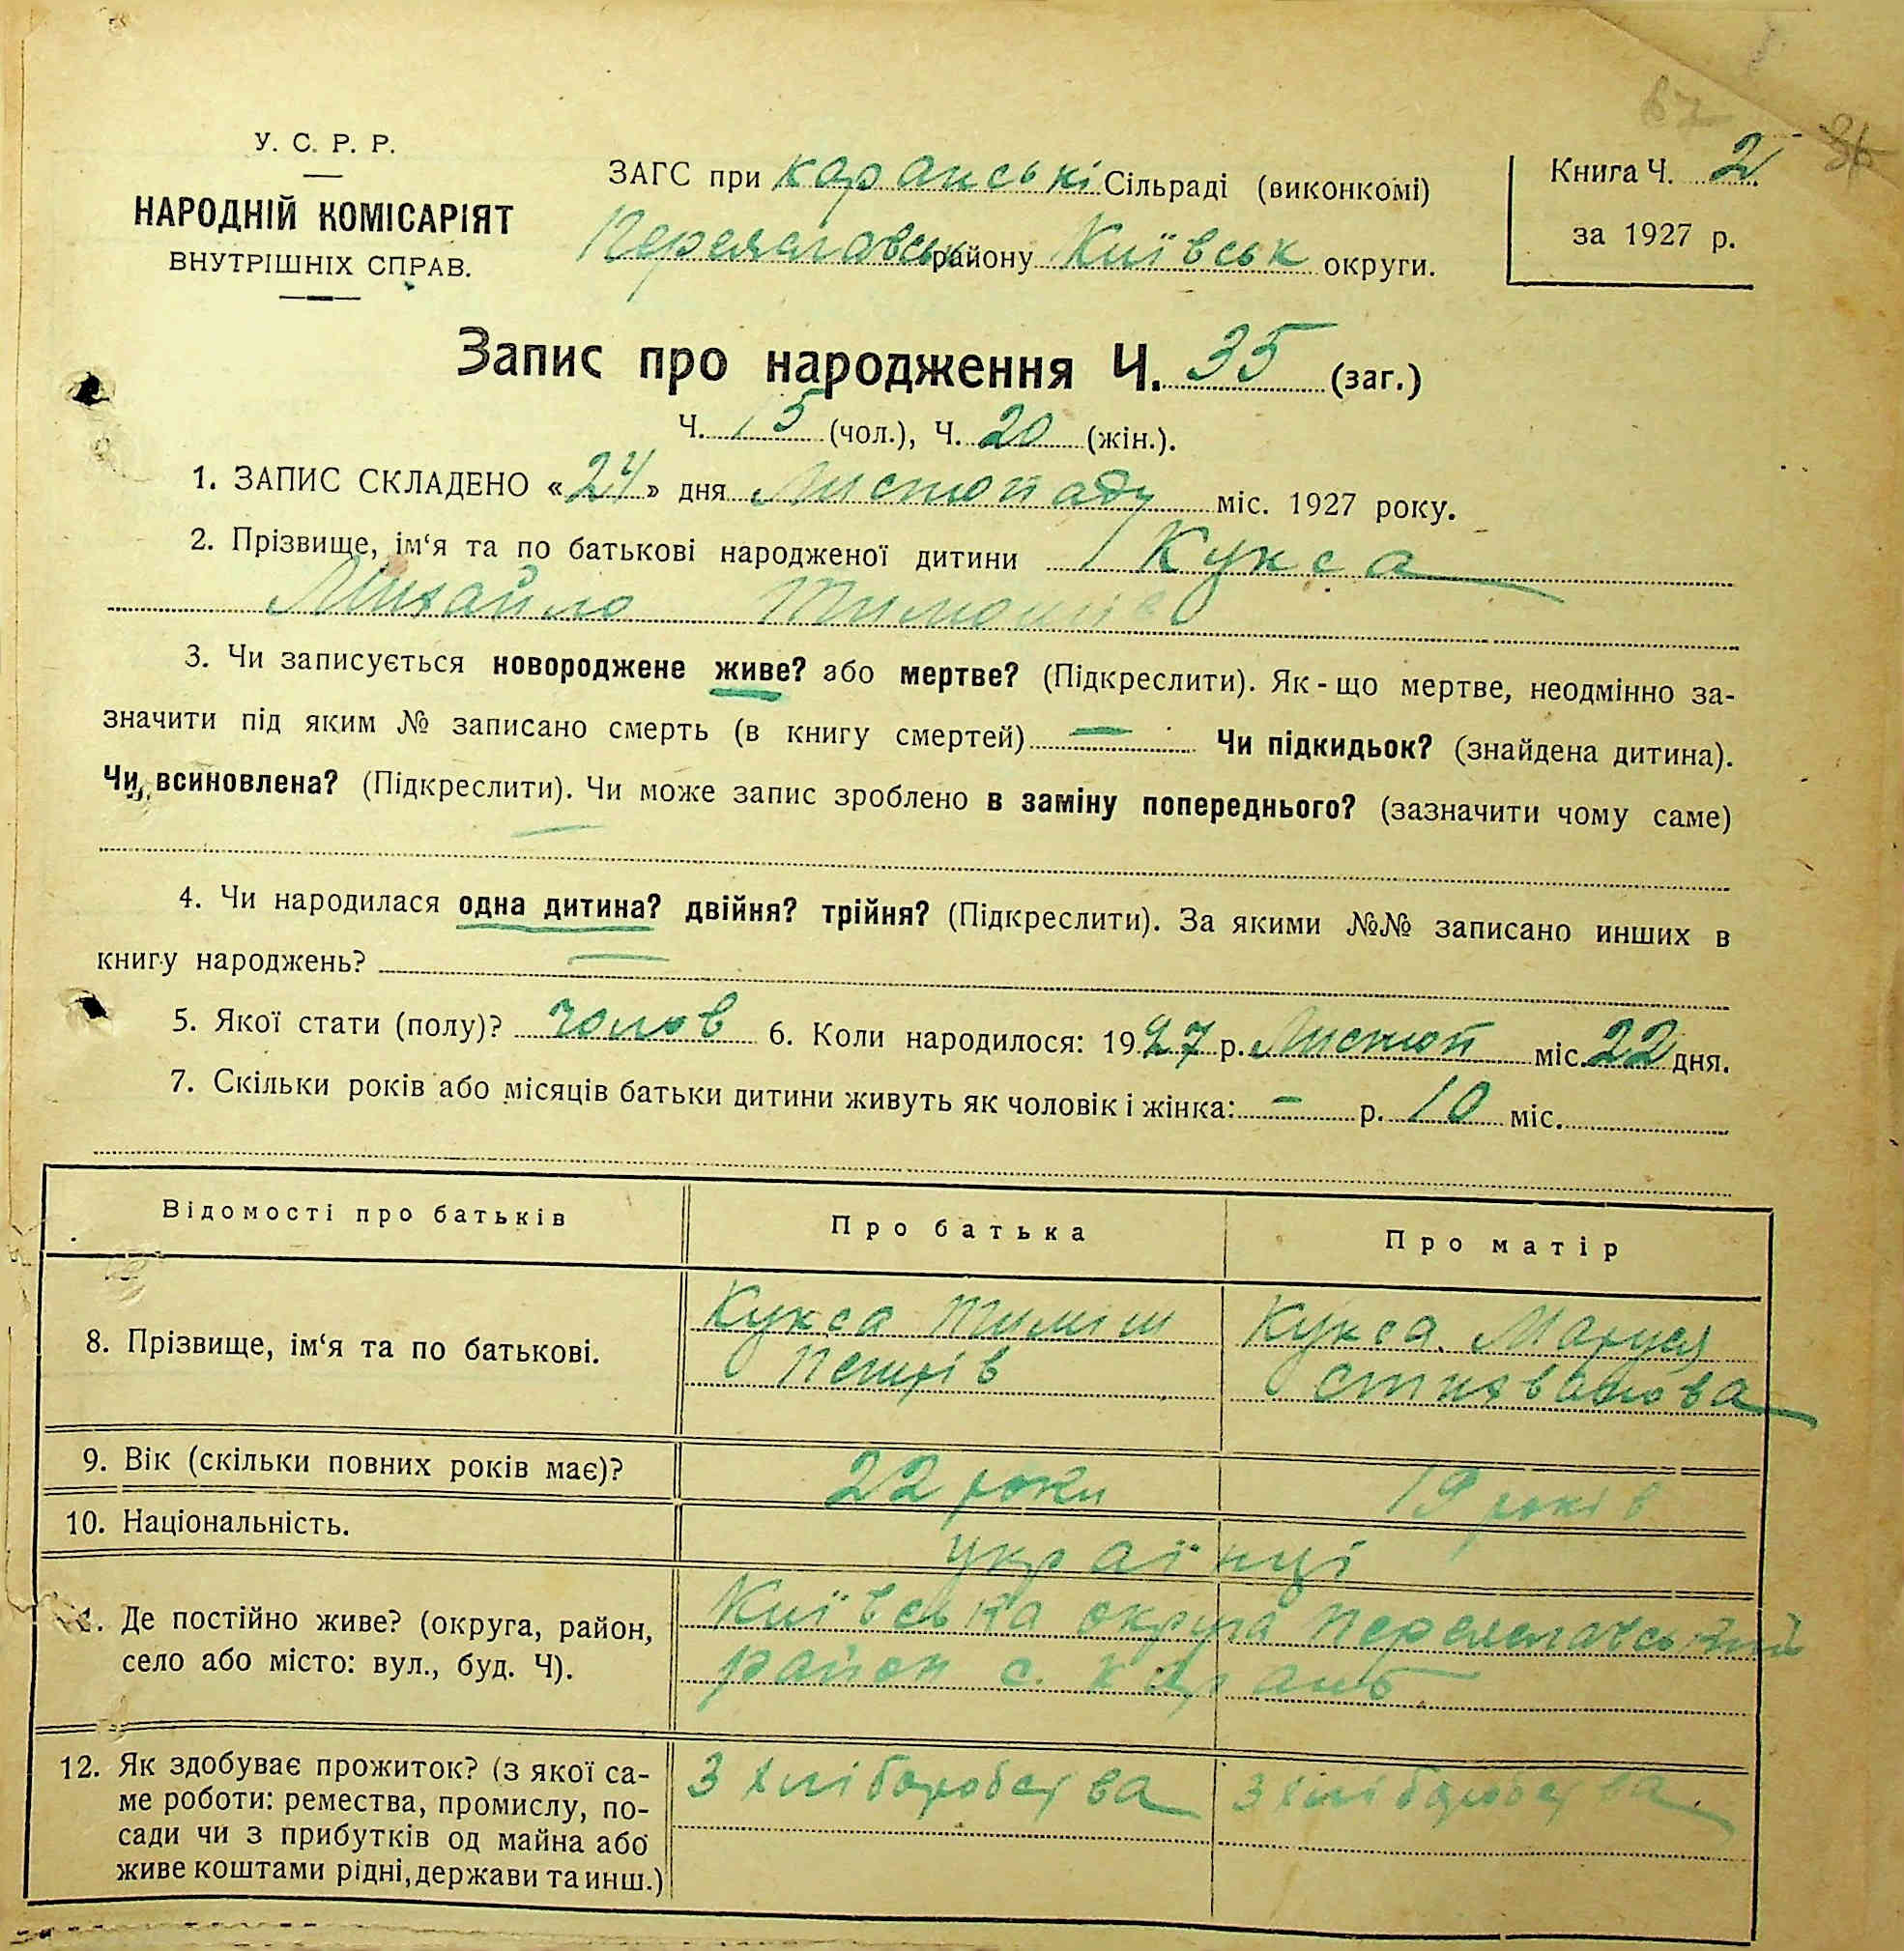 У. С. Р. Р.
НАРОДНІЙ КОМІСАРІЯТ
ВНУТРІШНІХ СПРАВ.
ЗАГС при каранські Сільраді (виконкомі)
Переяславськ району Київськ округи.
Книга Ч. 2
за 1927 р.
Запис про народження Ч. 35 (заг.)
Ч. 15 (чол.), Ч. 20 (жін.).
1. ЗАПИС СКЛАДЕНО «24» дня Листопаду міс. 1927 року.
2. Прізвище, ім‘я та по батькові народженої дитини Кукса
Михайло Тимошів
3. Чи записується новороджене живе? або мертве? (Підкреслити). Як-що мертве, неодмінно за-
значити під яким № записано смерть (в книгу смертей) — Чи підкидьок? (знайдена дитина).
Чи всиновлена? (Підкреслити). Чи може запис зроблено в заміну попереднього? (зазначити чому саме)
—
4. Чи народилася одна дитина? двійня? трійня? (Підкреслити). За якими №№ записано инших в
книгу народжень? —
5. Якої стати (полу)? чолов 6. Коли народилося: 1927 р. Листоп міс. 22 дня.
7. Скільки років або місяців батьки дитини живуть як чоловік і жінка: — р. 10 міс.
Відомості про батьків Про батька Про матір
8. Прізвище, ім‘я та по батькові.
Кукса Тиміш
Петрів
Кукса Маруся
9. Вік (скільки повних років має)? 22 роки 19 років
10. Національність. українці
11. Де постійно живе? (округа, район,
село або місто: вул., буд. Ч).
Київська округа Переяславський
район с. Карань
12. Як здобуває прожиток? (з якої са-
ме роботи: ремества, промислу, по-
сади чи з прибутків од майна або
живе коштами рідні, держави та инш.)
З хліборобства
З хліборобства